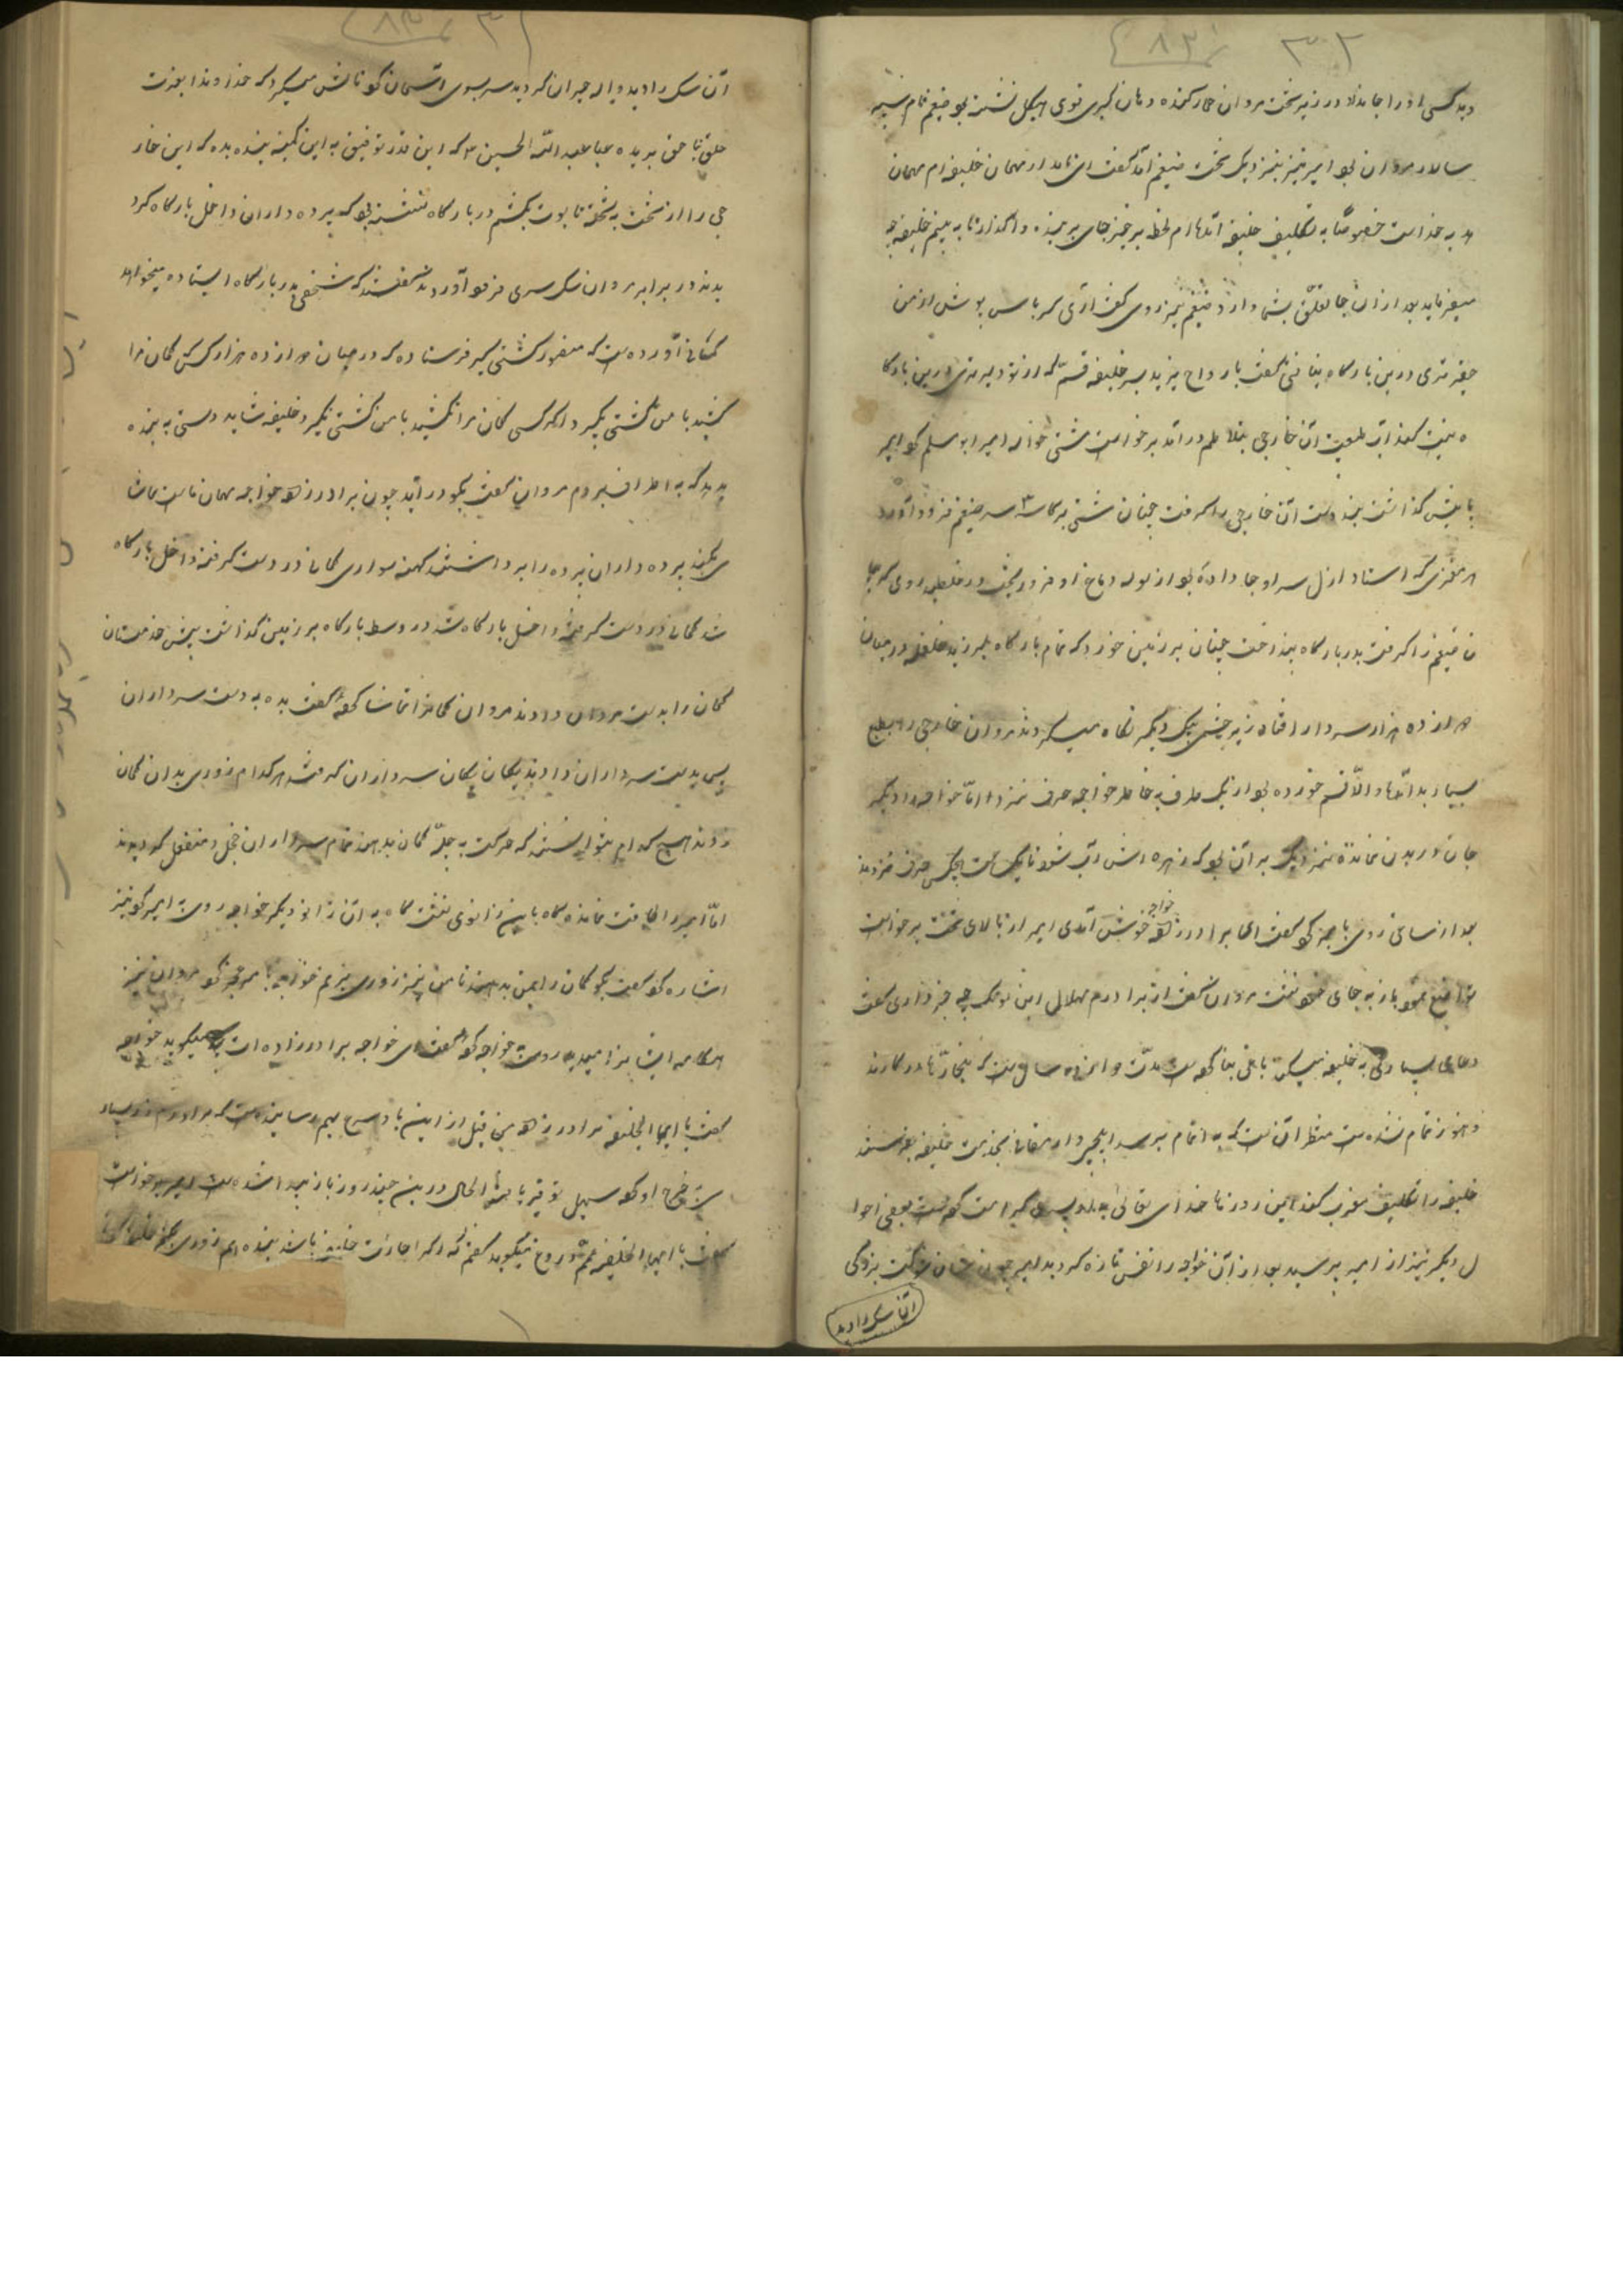 ۳۰۲
دید کسی او را جا نداد در زیر تخت مروان حمار کنده دهان کبری قوی هیکل نشسته بود ضیغم نام سپه
سالار مروان بود امیر نیز بنزدیک تخت ضیغم آمد گفت ای نامدار مهمان خلیفه‌ام مهمان
هدیه خداست خصوصاً به تکلیف خلیفه آمده‌ام لحظه برخیز جای بر بنده واگذار تا به بینم خلیفه چه
میفرماید بعد از آن جا تعلق بشما دارد ضیغم تیز روی گفت ای کرباس پوش از من
حقیرتری درین بارگاه نیافتی گفت بارواح یزید پسر خلیفه قسم که از تو دلیرتری درین بارگا
ه نیست کف آب طبیعت آن خارجی بتلاطم درآمد برخواست مشتی حواله امیر ابو مسلم کرد امیر
پا پیش گذاشت بند دست آن خارجی را گرفت چنان مشتی به کاسه سر ضیغم فرود آورد
هر مغزی که استاد ازل سر او جا داده بود از لوله دماغ او فرو ریخت در غلطید روی کرد
ن ضیغم را گرفت بدر بارگاه انداخت چنان بر زمین خورد که تمام بارگاه بلرزید غلغله در میان
دوازده هزار سردار افتاد زیر چشمی بیک دیگر نگاه میکردند مروان خارجی را بطبع
بسیار بد آمد اما والا قسم خورده بود از یک طرف به خاطر خواجه حرف نمیزد اما خواجه را دیگر
جان در بدن نمانده نزدیک بر آن بود که زهره‌اش آب شود تا یک ساعت هیچکس حرف نزدند
بعد از ساعتی روی با میر کرد گفت ای برادر زاده خواجه خوش آمدی امیر از بالای تخت برخواست
تواضع نمود باز به جای خود نشست مروان گفت از برادرم هلال ابن نوفل چه خبر داری گفت
دعای بسیاری به خلیفه میرساند باغی بنا کرده است مدت دوازده سال است که نجارها در کارند
و هنوز تمام نشده است منتظر آن است که به اتمام برسد ایلچی و ارمغان بخدمت خلیفه بفرستد
خلیفه را تکلیف مغرب کند این روزها خدای تعالی به او پسری کرامت کرده است بعضی احوا
ل دیگر نیز از امیر پرسید بعد از آن خواجه را نفس تازه گردید امیر چون شأن شوکت بزرگی
آن سگ را دید
آن سگ را دید واله حیران گردید سر بسوی آسمان کرد نالش میکرد که خداوندا بعزت
حلق ناحق بریده یا عبدالله الحسین که این قدر توفیق به این کمینه بنده بده که این خار
جی را از تخت به تخته تابوت بکشم در بارگاه نشسته بود که پرده داران داخل بارگاه کرد
یدند در برابر مروان سگ سری فرو آوردند گفتند که شخصی بدر بارگاه ایستاده میخواهد
کمانی آورده است که منصور کشتی گیر فرستاده که در میان دوازده هزار کس کسی کمان مرا
کشید با من کشتی بگیرد اگر کسی کمان مرا نکشید با من کشتی نگیرد خلیفه شاید دستی به بنده
بدهد که به اطراف بروم مروان گفت بگو درآید چون برادر زاده خواجه مهمان ماست تماشا
ی بکند پرده داران پرده را برداشتند کهنه سواری کمانی در دست گرفته داخل بارگاه
شد کمانی در دست گرفته داخل بارگاه شد در وسط بارگاه بر زمین گذاشت پیش خدمتان
کمان را بدست مروان دادند مروان کمان را تماشا کرد گفت بده به دست سرداران
پس بدست سرداران دادند یکان یکان سرداران گرفتند هر کدام زوری بدان کمان
زدند هیچ کدام نتوانستند که حرکت به چله کمان بدهند تمام سرداران خجل و منفعل گردیدند
اما امیر را طاقت نمانده گاه باین زانوی نشست گاه به آن زانو دیگر خواجه رو به امیر کرد نیز
اشاره کرد گفت بگو کمان را بمن بدهند تا من نیز زوری بزنم خواجه با میر کرد مروان نیز
هنگامه ایشان را میدید رو به خواجه کرد گفت ای خواجه برادر زاده‌ات چه میگوید خواجه
گفت یا ایها الخلیفه برادر زاده من قبل از این باد سرخ بهم رسانیده است که برادرم زر بسیار
ی خرج او کرد سهل توفیر یافته الحال درین چند روز باز پیدا شده است امیر برخواست
گفت یا ایها الخلیفه عمم دروغ میگوید گفتم که اگر اجازت خلیفه باشد بنده هم زوری